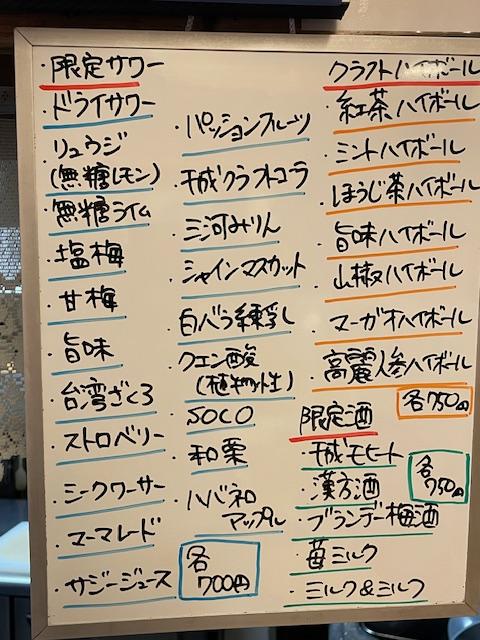 ・限定サワー
・ドライサワー
・リュウジ
(無糖レモン)
・無糖ライム
・塩梅
・甘梅
・旨味
・台湾ざくろ
・ストロベリー
・シークワーサー
・マーマレード
・サジージュース
・パッションフルーツ
・千成クラフトコーラ
・三河みりん
・シャインマスカット
・白バラ練乳
・クエン酸
(植物性)
・SOCO
・和栗
・ハバネロ
アップル
各
700円
クラフトハイボール
・紅茶ハイボール
・ミントハイボール
・ほうじ茶ハイボール
・旨味ハイボール
・山椒ハイボール
・マーガオハイボール
・高麗人参ハイボール
各750円
限定酒
・千成モヒート
・漢方酒
・ブランデー梅酒
・苺ミルク
・ミルク&ミルク
各
750円